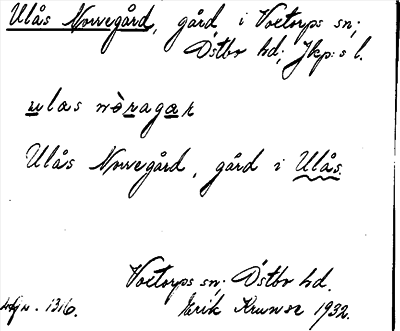 Ulås Norregård, gård i Voetorps sn;
Östbo hd; Jkp:s l.
ulas nòragaʀ
Ulås Norregård, gård i Ulås.
Voetorps sn. Östbo hd.
1316. Erik Kruuse 1932.